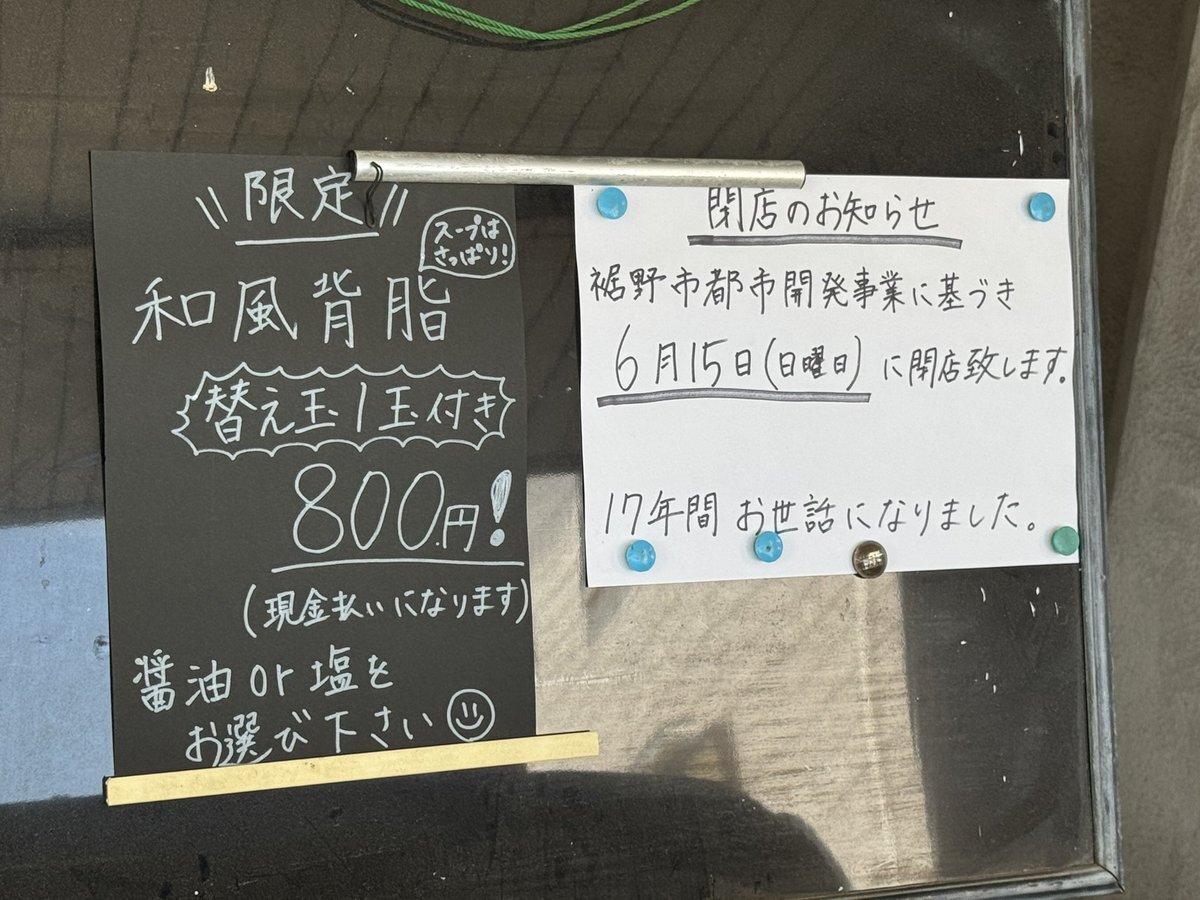 限定
スープは
さっぱり!
和風背脂
替え玉1玉付き
800円!
(現金払いになります)
醤油or塩を
お選び下さい
閉店のお知らせ
裾野市都市開発事業に基づき
6月15日(日曜日)に閉店致します。
17年間 お世話になりました。